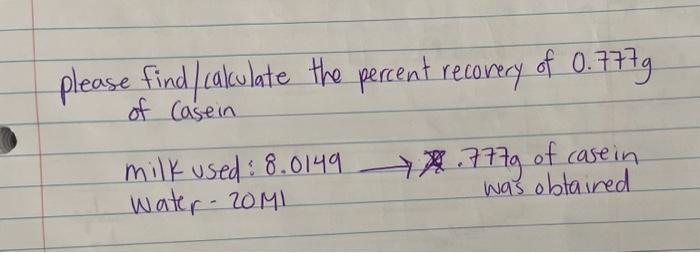 please find/calculate the percent recovery of 0.777g
of Casein
milk used: 8.0149 → .777g of casein
was obtained
Water - 20Ml